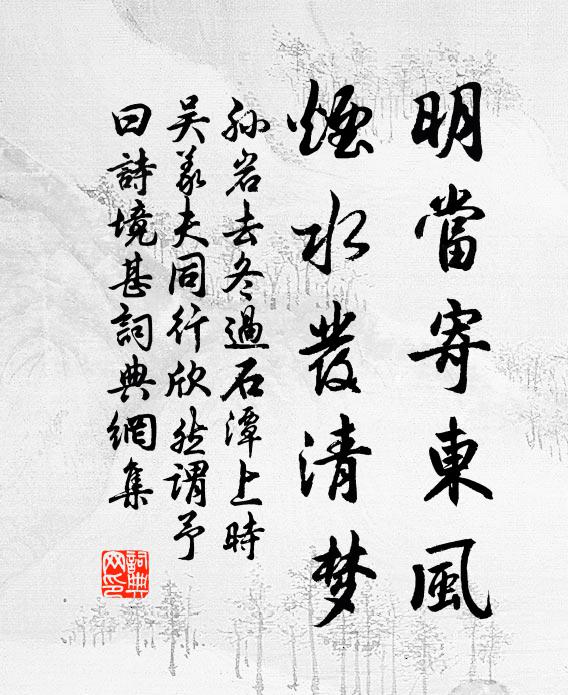 明當寄東風
煙水發清梦
孙岩去冬過石潭上時
吴義夫同行欣然謂予
曰詩境甚詞典網集
詞典網印